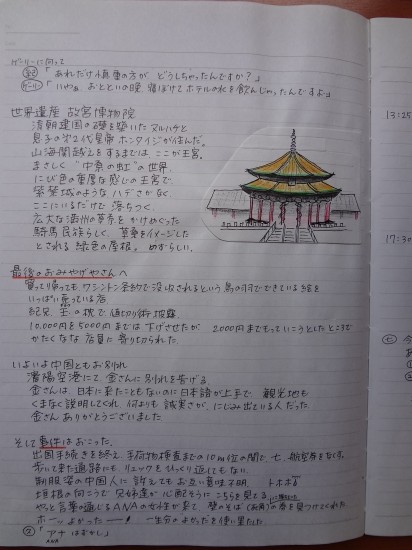 ガーリーに向って
「あれだけ慎重の方が どうしちゃったんですか?」
「いやぁ おとといの晩 寝ぼけてホテルの水を飲んじゃったんですよ」
世界遺産 故宮博物院
清朝建国の礎を築いた ヌルハチと
息子の第2代皇帝ホンタイジが住んだ。
山海関越えをするまでは、ここが王宮。
まさしく “中原の虹” の世界。
にび色の重厚な感じの王宮で、
紫禁城のような ハデさがなく
ここにいるだけで 落ちつく
広大な満州の草原をかけめぐった
騎馬民族らしく、草原をイメージした
とされる 緑色の屋根。 めずらしい。
最後のおみやげやさんへ
買って帰っても、ワシントン条約で没収されるという鳥の羽でできている絵を
いっぱい売っている店
10,000円を5000円までは下げさせたが 2000円までもっていこうとしたところで
かたくなな店員に寄り切られた
いよいよ中国ともお別れ
瀋陽空港にて、金さんに別れを告げる
金さんは、日本に来たこともないのに日本語が上手で、観光地も
くまなく説明してくれ、何よりも誠実さが、にじみ出ている人だった
金さん ありがとうございました
そして事件はおこった。
出国手続きを終え、手荷物検査までの10m位の間で、七、航空券をなくす。
歩いて来た通路にも、リュックをひっくり返してもない。
制服姿の中国人に 訴えてもお互い意味不明 トホホ
垣根の向こうで 兄姉達が 心配そうにこちらを見てる
やっと言葉の通じるANAの女性が来て、壁のそば(死角)の券を見つけてくれた
ホーッ よかったーー! 一生分のよかったを使い果たした
「アナ はずかし」
ANA
13:25
17:30